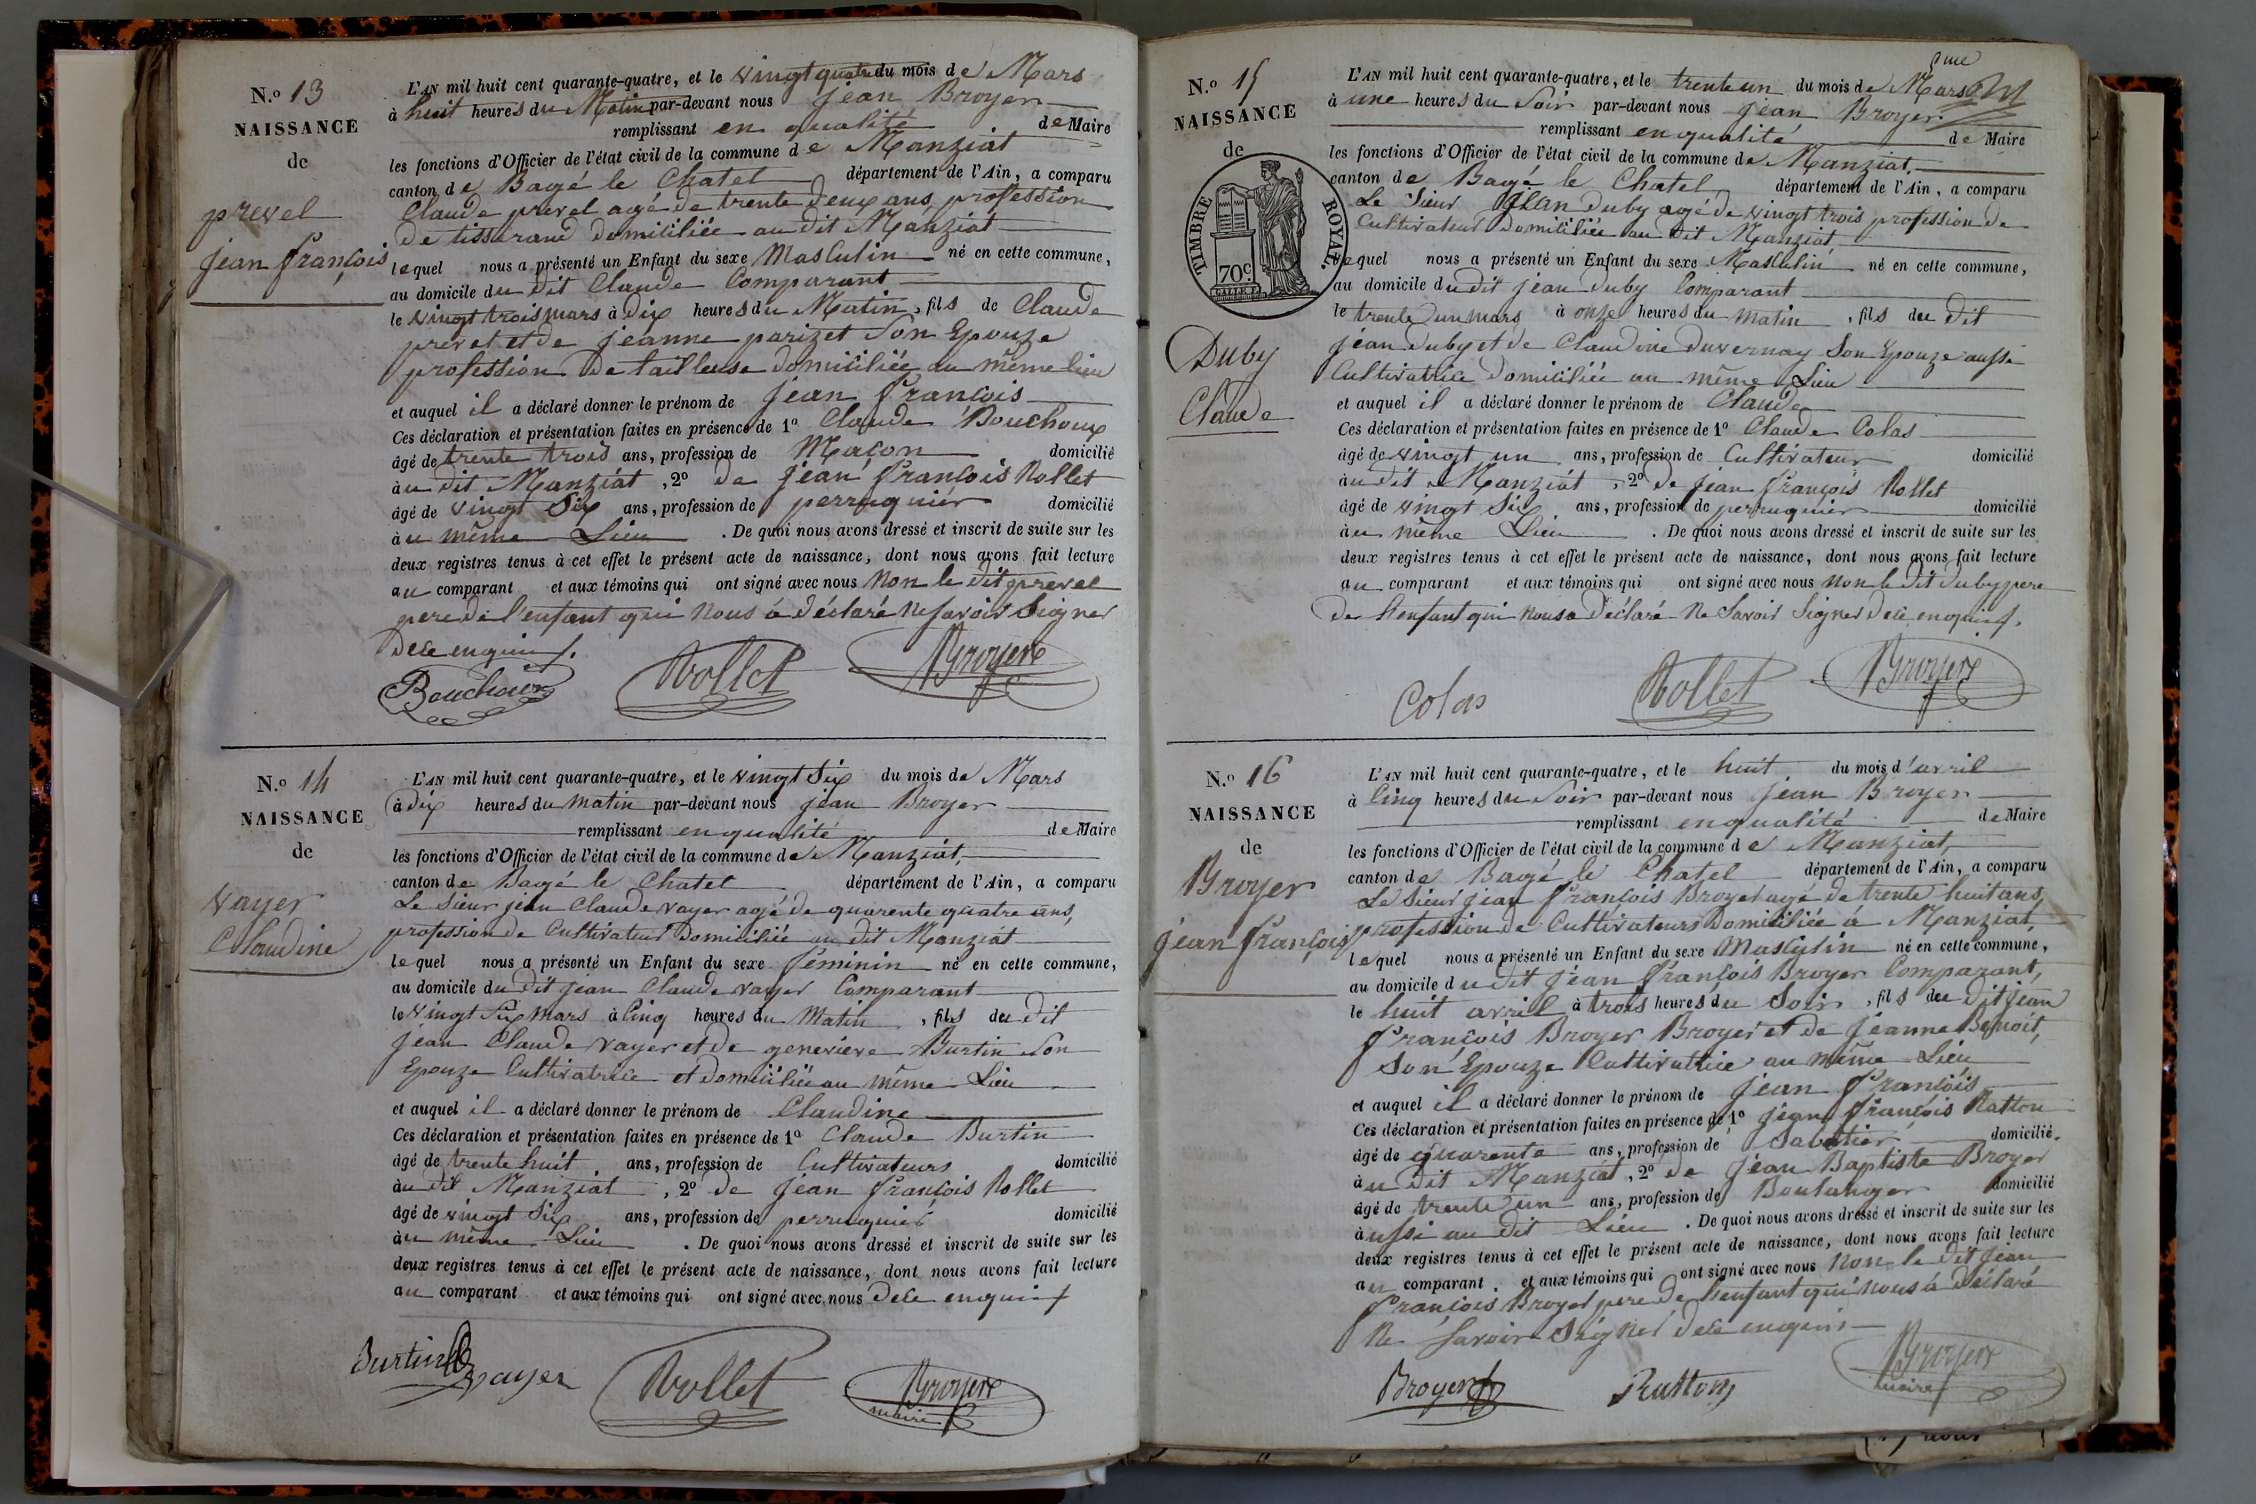 N.o 13
NAISSANCE
de
prevel
jean françois
L'AN mil huit cent quarante-quatre, et le vingt quatre du mois de Mars
à huit heures du Matin par-devant nous jean Broyer
remplissant en qualité de Maire
les fonctions d'Officier de l'état civil de la commune de Manziat
canton de Bagé le Chatel département de l'Ain, a comparu
Claude prevel agé de trente deux ans, profession
de tisserand domiciliée au dit Manziat
lequel nous a présenté un Enfant du sexe Masculin né en cette commune,
au domicile du dit Claude Comparant
le vingt trois mars à dix heures du Matin, fils de Claude
prevel et de jeanne parizet Son Epouze
profession de tailleuse domiciliée au même lieu
et auquel il a déclaré donner le prénom de jean françois
Ces déclaration et présentation faites en présence de 1o Claude Bouchoux
âgé de trente trois ans, profession de Maçon domicilié
àu dit Manziat, 2o de jean françois Rollet
âgé de vingt Six ans, profession de perruquier domicilié
àu même Lieu. De quoi nous avons dressé et inscrit de suite sur les
deux registres tenus à cet effet le présent acte de naissance, dont nous avons fait lecture
au comparant et aux témoins qui ont signé avec nous Non le dit prevel
pere de l'enfant qui Nous à déclaré ne Savoir Signer
de ce enquis.
Bouchoux Rollet Broyer
N.o 14
NAISSANCE
de
vayer
Claudine
L'AN mil huit cent quarante-quatre, et le vingt Six du mois de Mars
à dix heures du matin par-devant nous jean Broyer
remplissant en qualité de Maire
les fonctions d'Officier de l'état civil de la commune de Manziat,
canton de Bagé le Chatel département de l'Ain, a comparu
Le Sieur jean Claude vayer agé de quarente quatre ans,
profession de Cultivateur Domiciliée au dit Manziat
lequel nous a présenté un Enfant du sexe féminin né en cette commune,
au domicile du dit jean Claude vayer Comparant
le vingt Six Mars à Cinq heures du Matin, fils du dit
jean Claude vayer et de genevieve Burtin Son
Epouze Cultivatrice et domiciliée au même Lieu
et auquel il a déclaré donner le prénom de Claudine
Ces déclaration et présentation faites en présence de 1o Claude Burtin
âgé de trente huit ans, profession de Cultivateurs domicilié
àu dit Manziat, 2o de jean françois Rollet
âgé de vingt Six ans, profession de perruquier domicilié
àu même Lieu. De quoi nous avons dressé et inscrit de suite sur les
deux registres tenus à cet effet le présent acte de naissance, dont nous avons fait lecture
au comparant et aux témoins qui ont signé avec nous de ce enquis
Burtin vayer Rollet Broyer
maire
N.o 15
NAISSANCE
de
TIMBRE ROYAL.
70c.
Duby
Claude
L'AN mil huit cent quarante-quatre, et le trente un du mois de Mars
à une heures du Soir par-devant nous jean Broyer
remplissant en qualité de Maire
les fonctions d'Officier de l'état civil de la commune de Manziat,
canton de Bagé le Chatel département de l'Ain, a comparu
Le Sieur jean duby agé de vingt trois profession de
Cultivateur domiciliée au dit Manziat,
lequel nous a présenté un Enfant du sexe Masculin né en cette commune,
au domicile du dit jean duby Comparant
le trente un mars à onze heures du matin, fils du dit
jean duby et de Claudine Duvernay Son Epouze aussi
Cultivatrice domiciliée au même Lieu
et auquel il a déclaré donner le prénom de Claude
Ces déclaration et présentation faites en présence de 1o Claude Colas
âgé de vingt un ans, profession de Cultivateur domicilié
àu dit Manziat, 2o de jean françois Rollet
âgé de vingt Six ans, profession de perruquier domicilié
àu même Lieu. De quoi nous avons dressé et inscrit de suite sur les
deux registres tenus à cet effet le présent acte de naissance, dont nous avons fait lecture
au comparant et aux témoins qui ont signé avec nous non le dit duby pere
de l'enfant qui nous a déclaré Ne Savoir Signer de ce enquis.
Colas Rollet Broyer
N.o 16
NAISSANCE
de
Broyer
jean françois
L'AN mil huit cent quarante-quatre, et le huit du mois d'avril
à Cinq heures du Soir par-devant nous jean Broyer
remplissant en qualité de Maire
les fonctions d'Officier de l'état civil de la commune de Manziat,
canton de Bagé le Chatel département de l'Ain, a comparu
Le Sieur jean françois Broyer agé de trente huit ans,
profession de Cultivateurs Domiciliée à Manziat,
lequel nous a présenté un Enfant du sexe Masculin né en cette commune,
au domicile du dit jean françois Broyer Comparant,
le huit avril à trois heures du Soir, fils du dit jean
françois Broyer Broyer et de jeanne Benoit,
Son Epouze Cultivatrice au même Lieu
et auquel il a déclaré donner le prénom de jean françois
Ces déclaration et présentation faites en présence de 1o jean françois Ratton
âgé de quarente ans, profession de Sabotier domicilié
àu dit Manziat, 2o de jean Baptiste Broyer
âgé de trente un ans, profession de Boulanger domicilié
àussi au dit Lieu. De quoi nous avons dressé et inscrit de suite sur les
deux registres tenus à cet effet le présent acte de naissance, dont nous avons fait lecture
au comparant et aux témoins qui ont signé avec nous Non le dit jean
françois Broyer pere de l'enfant qui nous à déclaré
Ne Savoir Signer de ce enquis
Broyer Rutton Broyer
maire